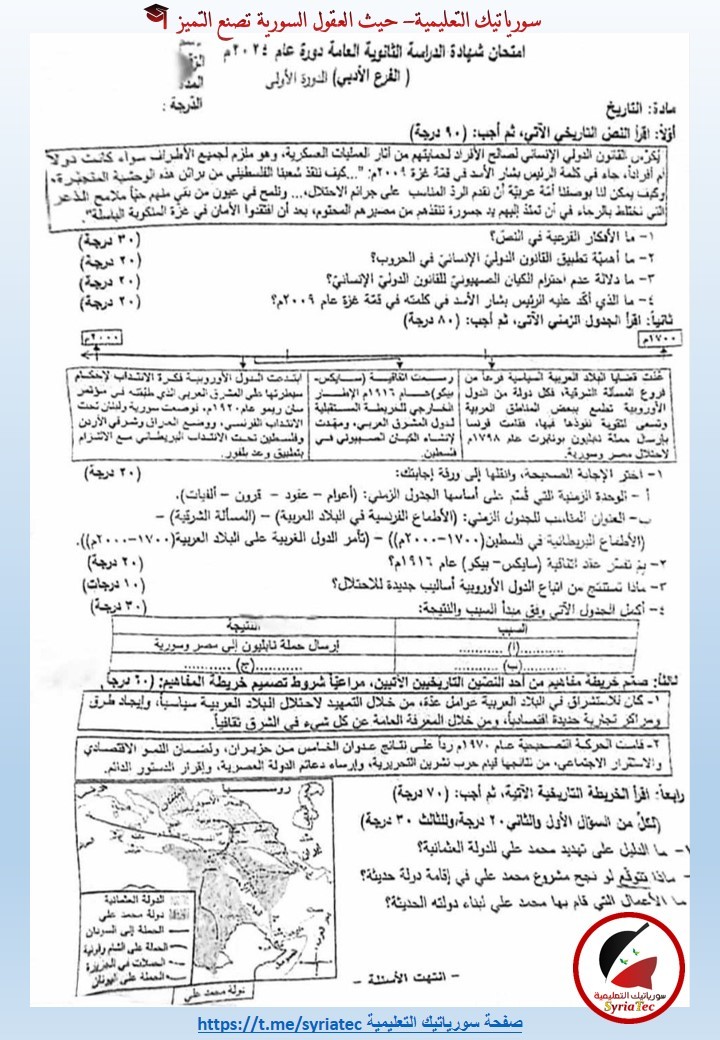 سورياتيك التعليمية– حيث العقول السورية تصنع التميز
امتحان شهادة الدراسة الثانوية العامة دورة عام ٢٠٢٤م
( الفرع الأدبي) الدورة الأولى
الدرجة :
مادة: التاريخ
أولاً: اقرأ النص التاريخي الآتي، ثم أجب: (٩٠ درجة)
يُكرّس القانون الدولي الإنساني لصالح الأفراد لحمايتهم من آثار العمليات العسكرية، وهو ملزم لجميع الأطراف سواء كانت دولاً
أم أفراداً، جاء في كلمة الرئيس بشار الأسد في قمّة غزة ٢٠٠٩م: "...كيف ننقذ شعبنا الفلسطيني من براثن هذه الوحشية المتجبّرة،
وكيف يمكن لنا بوصفنا أمّة عربيّة أن نقدم الردّ المناسب على جرائم الاحتلال،... ونلمح في عيون من بقي منهم حيّاً ملامح الذعر
التي تختلط بالرجاء في أن تمتدّ إليهم يد جسورة تنقذهم من مصيرهم المحتوم، بعد أن افتقدوا الأمان في غزّة المنكوبة الباسلة".
١- ما الأفكار الفرعية في النصّ؟ (٣٠ درجة)
٢- ما أهميّة تطبيق القانون الدوليّ الإنسانيّ في الحروب؟ (٢٠ درجة)
٣- ما دلالة عدم احترام الكيان الصهيونيّ للقانون الدوليّ الإنسانيّ؟ (٢٠ درجة)
٤- ما الذي أكّد عليه الرئيس بشار الأسد في كلمته في قمّة غزة عام ٢٠٠٩م؟ (٢٠ درجة)
ثانياً: اقرأ الجدول الزمني الآتي، ثم أجب: (٨٠ درجة)
١٧٠٠م
٢٠٠٠م
عُدّت قضايا البلاد العربية السياسية فرعاً من
فروع المسألة الشرقية، فكل دولة من الدول
الأوروبية تطمع ببعض المناطق العربية
وتسعى لتقوية نفوذها فيها، فقامت فرنسا
بإرسال حملة نابليون بونابرت عام ١٧٩٨م
لاحتلال مصر وسورية.
رسمت اتفاقية (سايكس-
بيكو)عام ١٩١٦م الإطار
الخارجي للخريطة المستقبلية
لدول المشرق العربي، ومهّدت
لإنشاء الكيان الصهيوني في
فلسطين.
ابتدعت الدول الأوروبية فكرة الانتداب لإحكام
سيطرتها على المشرق العربي الذي طبّقته في مؤتمر
سان ريمو عام ١٩٢٠م، فوضعت سورية ولبنان تحت
الانتداب الفرنسي، ووضع العراق وشرقي الأردن
وفلسطين تحت الانتداب البريطاني مع الالتزام
بتطبيق وعد بلفور.
١- اختر الإجابة الصحيحة، وانقلها إلى ورقة إجابتك: (٢٠ درجة)
أ - الوحدة الزمنية التي قُسّم على أساسها الجدول الزمني: (أعوام – عقود - قرون – ألفيات).
ب- العنوان المناسب للجدول الزمني: (الأطماع الفرنسية في البلاد العربية) – (المسألة الشرقية) –
(الأطماع البريطانية في فلسطين(١٧٠٠-٢٠٠٠م)) – (تآمر الدول الغربية على البلاد العربية(١٧٠٠-٢٠٠٠م)).
٢- بمَ تفسّر عقد اتفاقية (سايكس-بيكو) عام ١٩١٦م؟ (٢٠ درجة)
٣- ماذا تستنتج من اتباع الدول الأوروبية أساليب جديدة للاحتلال؟ (١٠ درجات)
٤- أكمل الجدول الآتي وفق مبدأ السبب والنتيجة: (٣٠ درجة)
السبب النتيجة
..........(أ) .......... إرسال حملة نابليون إلى مصر وسورية
..........(ب) .......... ..........(ج) ..........
ثالثاً: صمّم خريطة مفاهيم من أحد النصّين التاريخيين الآتيين، مراعياً شروط تصميم خريطة المفاهيم:
١- كان للاستشراق في البلاد العربية عوامل عدّة، من خلال التمهيد لاحتلال البلاد العربية سياسياً، وإيجاد طرق
ومراكز تجارية جديدة اقتصادياً، ومن خلال المعرفة العامة عن كل شيء في الشرق ثقافياً.
٢- قامت الحركة التصحيحية عام ١٩٧٠م رداً على نتائج عدوان الخامس من حزيران، ولضمان النمو الاقتصادي
والاستقرار الاجتماعي، من نتائجها قيام حرب تشرين التحريرية، وإرساء دعائم الدولة العصرية، وإقرار الدستور الدائم.
رابعاً: اقرأ الخريطة التاريخية الآتية، ثم أجب: (٧٠ درجة)
(لكلٍّ من السؤال الأول والثاني٢٠ درجة،وللثالث ٣٠ درجة)
١- ما الدليل على تهديد محمد علي للدولة العثمانية؟
- ماذا تتوقع لو نجح مشروع محمد علي في إقامة دولة حديثة؟
ما الأعمال التي قام بها محمد علي لبناء دولته الحديثة؟
روسيا
الدولة العثمانية
دولة محمد علي
الحملة إلى السودان
الحملة على الشام وقونية
الحملات في الجزيرة
الحملة على اليونان
دولة محمد علي
- انتهت الأسئلة -
سورياتيك التعليمية
SyriaTec
صفحة سورياتيك التعليمية https://t.me/syriatec